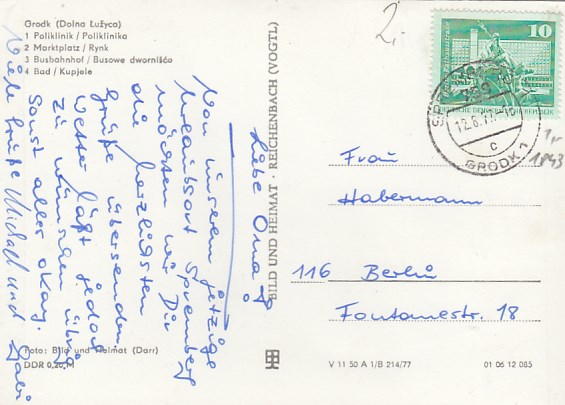 Grodk (Dolna Łužyca)
1 Poliklinik / Poliklinika
2 Marktplatz / Rynk
3 Busbahnhof / Busowe dwornišćo
4 Bad / Kupjele
Liebe Oma!
Von unserem jetzige
Urlaubsort Spremberg
möchten wir Dir
die herzlichsten
Grüße übersenden.
Wetter läßt jedoch
zu wünschen übrig
Sonst alles okay.
Viele Grüße Michael und Gabi
Foto: Bild und Heimat (Darr)
DDR 0,20 M
BILD UND HEIMAT · REICHENBACH (VOGTL)
2,-
10
DEUTSCHE DEMOKRATISCHE REPUBLIK
12.8.77-18
c
GRODK 1
1,-
1843
Frau
Habermann
116 Berlin
Fontanestr. 18
V 11 50 A 1/B 214/77
01 06 12 085